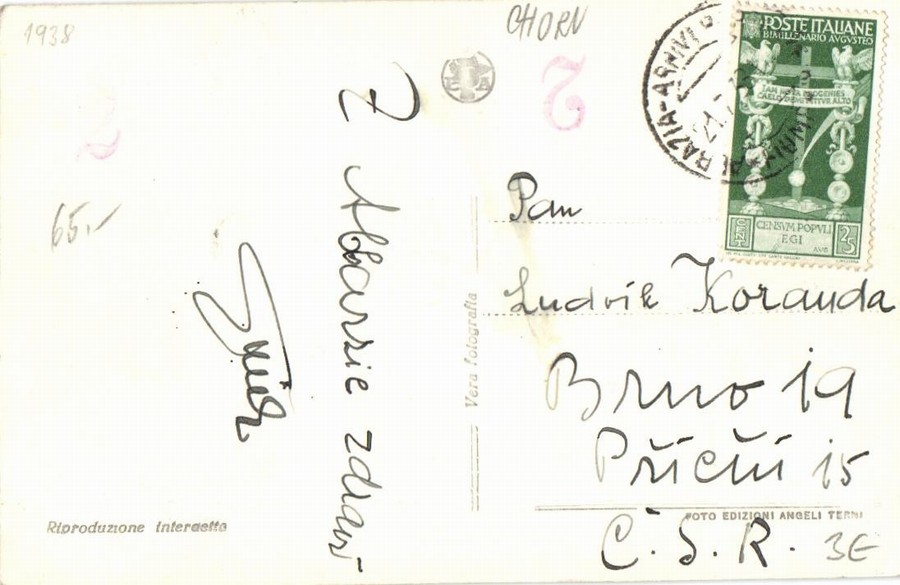 1938
CHORV
2
2
65.-
Z Abbazie zdraví
Riproduzione interdetta
Vera fotografia
POSTE ITALIANE
BIMILLENARIO AVGVSTEO
IAM NOVA PROGENIES
CAELO DEMITTITVR ALTO
CENSVM POPVLI
EGI
AVG
CENT
25
Pan
Ludvík Koranda
Brno 19
Příční 15
FOTO EDIZIONI ANGELI TERNI
Č.S.R.
3E